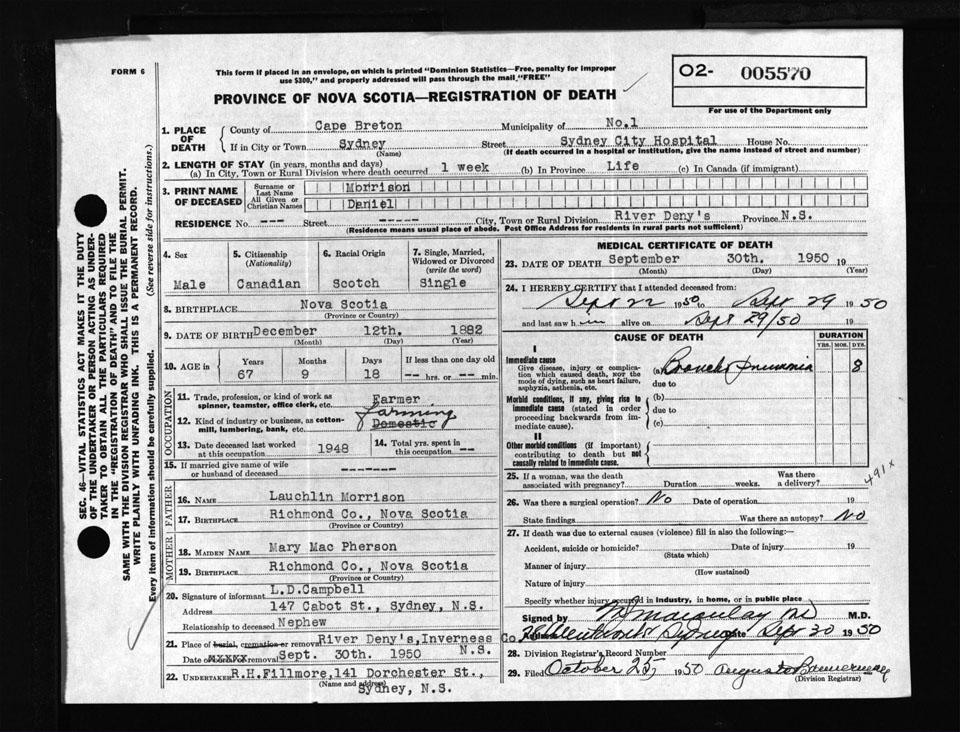 FORM 6
This form if placed in an envelope, on which is printed "Dominion Statistics—Free, penalty for improper
use $300," and properly addressed will pass through the mail "FREE"
PROVINCE OF NOVA SCOTIA—REGISTRATION OF DEATH
02- 005570
For use of the Department only
1. PLACE OF DEATH
County of Cape Breton Municipality of No.1
If in City or Town Sydney Street Sydney City Hospital House No.
(Name) (If death occurred in a hospital or institution, give the name instead of street and number)
2. LENGTH OF STAY (in years, months and days)
(a) In City, Town or Rural Division where death occurred 1 week (b) In Province Life (c) In Canada (if immigrant)
3. PRINT NAME OF DECEASED
Surname or Last Name Morrison
All Given or Christian Names Daniel
RESIDENCE No. --- Street ----- City, Town or Rural Division River Deny's Province N.S.
(Residence means usual place of abode. Post Office Address for residents in rural parts not sufficient)
4. Sex Male
5. Citizenship (Nationality) Canadian
6. Racial Origin Scotch
7. Single, Married, Widowed or Divorced (write the word) Single
8. BIRTHPLACE Nova Scotia
(Province or Country)
9. DATE OF BIRTH December 12th. 1882
(Month) (Day) (Year)
10. AGE in Years 67 Months 9 Days 18 If less than one day old -- hrs. or -- min.
OCCUPATION
11. Trade, profession, or kind of work as spinner, teamster, office clerk, etc. Farmer
12. Kind of industry or business, as cotton-mill, lumbering, bank, etc. Domestic farming
13. Date deceased last worked at this occupation 1948
14. Total yrs. spent in this occupation --
15. If married give name of wife or husband of deceased -------
FATHER
16. NAME Lauchlin Morrison
17. BIRTHPLACE Richmond Co., Nova Scotia
(Province or Country)
MOTHER
18. MAIDEN NAME Mary Mac Pherson
19. BIRTHPLACE Richmond Co., Nova Scotia
(Province or Country)
20. Signature of informant L.D.Campbell
Address 147 Cabot St., Sydney, N.S.
Relationship to deceased Nephew
21. Place of burial, cremation or removal River Deny's, Inverness Co. N.S.
Date of XXXXXX removal Sept. 30th. 1950
22. UNDERTAKER R.H.Fillmore, 141 Dorchester St.,
(Name and address) Sydney, N.S.
MEDICAL CERTIFICATE OF DEATH
23. DATE OF DEATH September 30th. 1950 19
(Month) (Day) (Year)
24. I HEREBY CERTIFY that I attended deceased from:
Sept 22 1950 to Sept 29 1950
and last saw him alive on Sept 29/50 19
CAUSE OF DEATH
DURATION
YRS. MOS. DYS.
I
Immediate cause
Give disease, injury or complication which caused death, nor the mode of dying, such as heart failure, asphyxia, asthenia, etc.
(a) Broncho Pneumonia 8
due to
Morbid conditions, if any, giving rise to immediate cause (stated in order proceeding backwards from immediate cause).
(b)
due to
(c)
II
Other morbid conditions (if important) contributing to death but not causally related to immediate cause.
491x
25. If a woman, was the death associated with pregnancy? Duration weeks. Was there a delivery?
26. Was there a surgical operation? No Date of operation 19
State findings Was there an autopsy? No
27. If death was due to external causes (violence) fill in also the following:—
Accident, suicide or homicide? Date of injury 19
(State which)
Manner of injury
(How sustained)
Nature of injury
Specify whether injury occurred in industry, in home, or in public place
Signed by M.D.
Sydney Date Sept 30 1950
28. Division Registrar's Record Number
29. Filed October 25, 1950
(Division Registrar)
SEC. 46—VITAL STATISTICS ACT MAKES IT THE DUTY
OF THE UNDERTAKER OR PERSON ACTING AS UNDER-
TAKER TO OBTAIN ALL THE PARTICULARS REQUIRED
IN THE "REGISTRATION OF DEATH" AND TO FILE THE
SAME WITH THE DIVISION REGISTRAR WHO SHALL ISSUE THE BURIAL PERMIT.
WRITE PLAINLY WITH UNFADING INK. THIS IS A PERMANENT RECORD.
Every item of information should be carefully supplied. (See reverse side for instructions.)